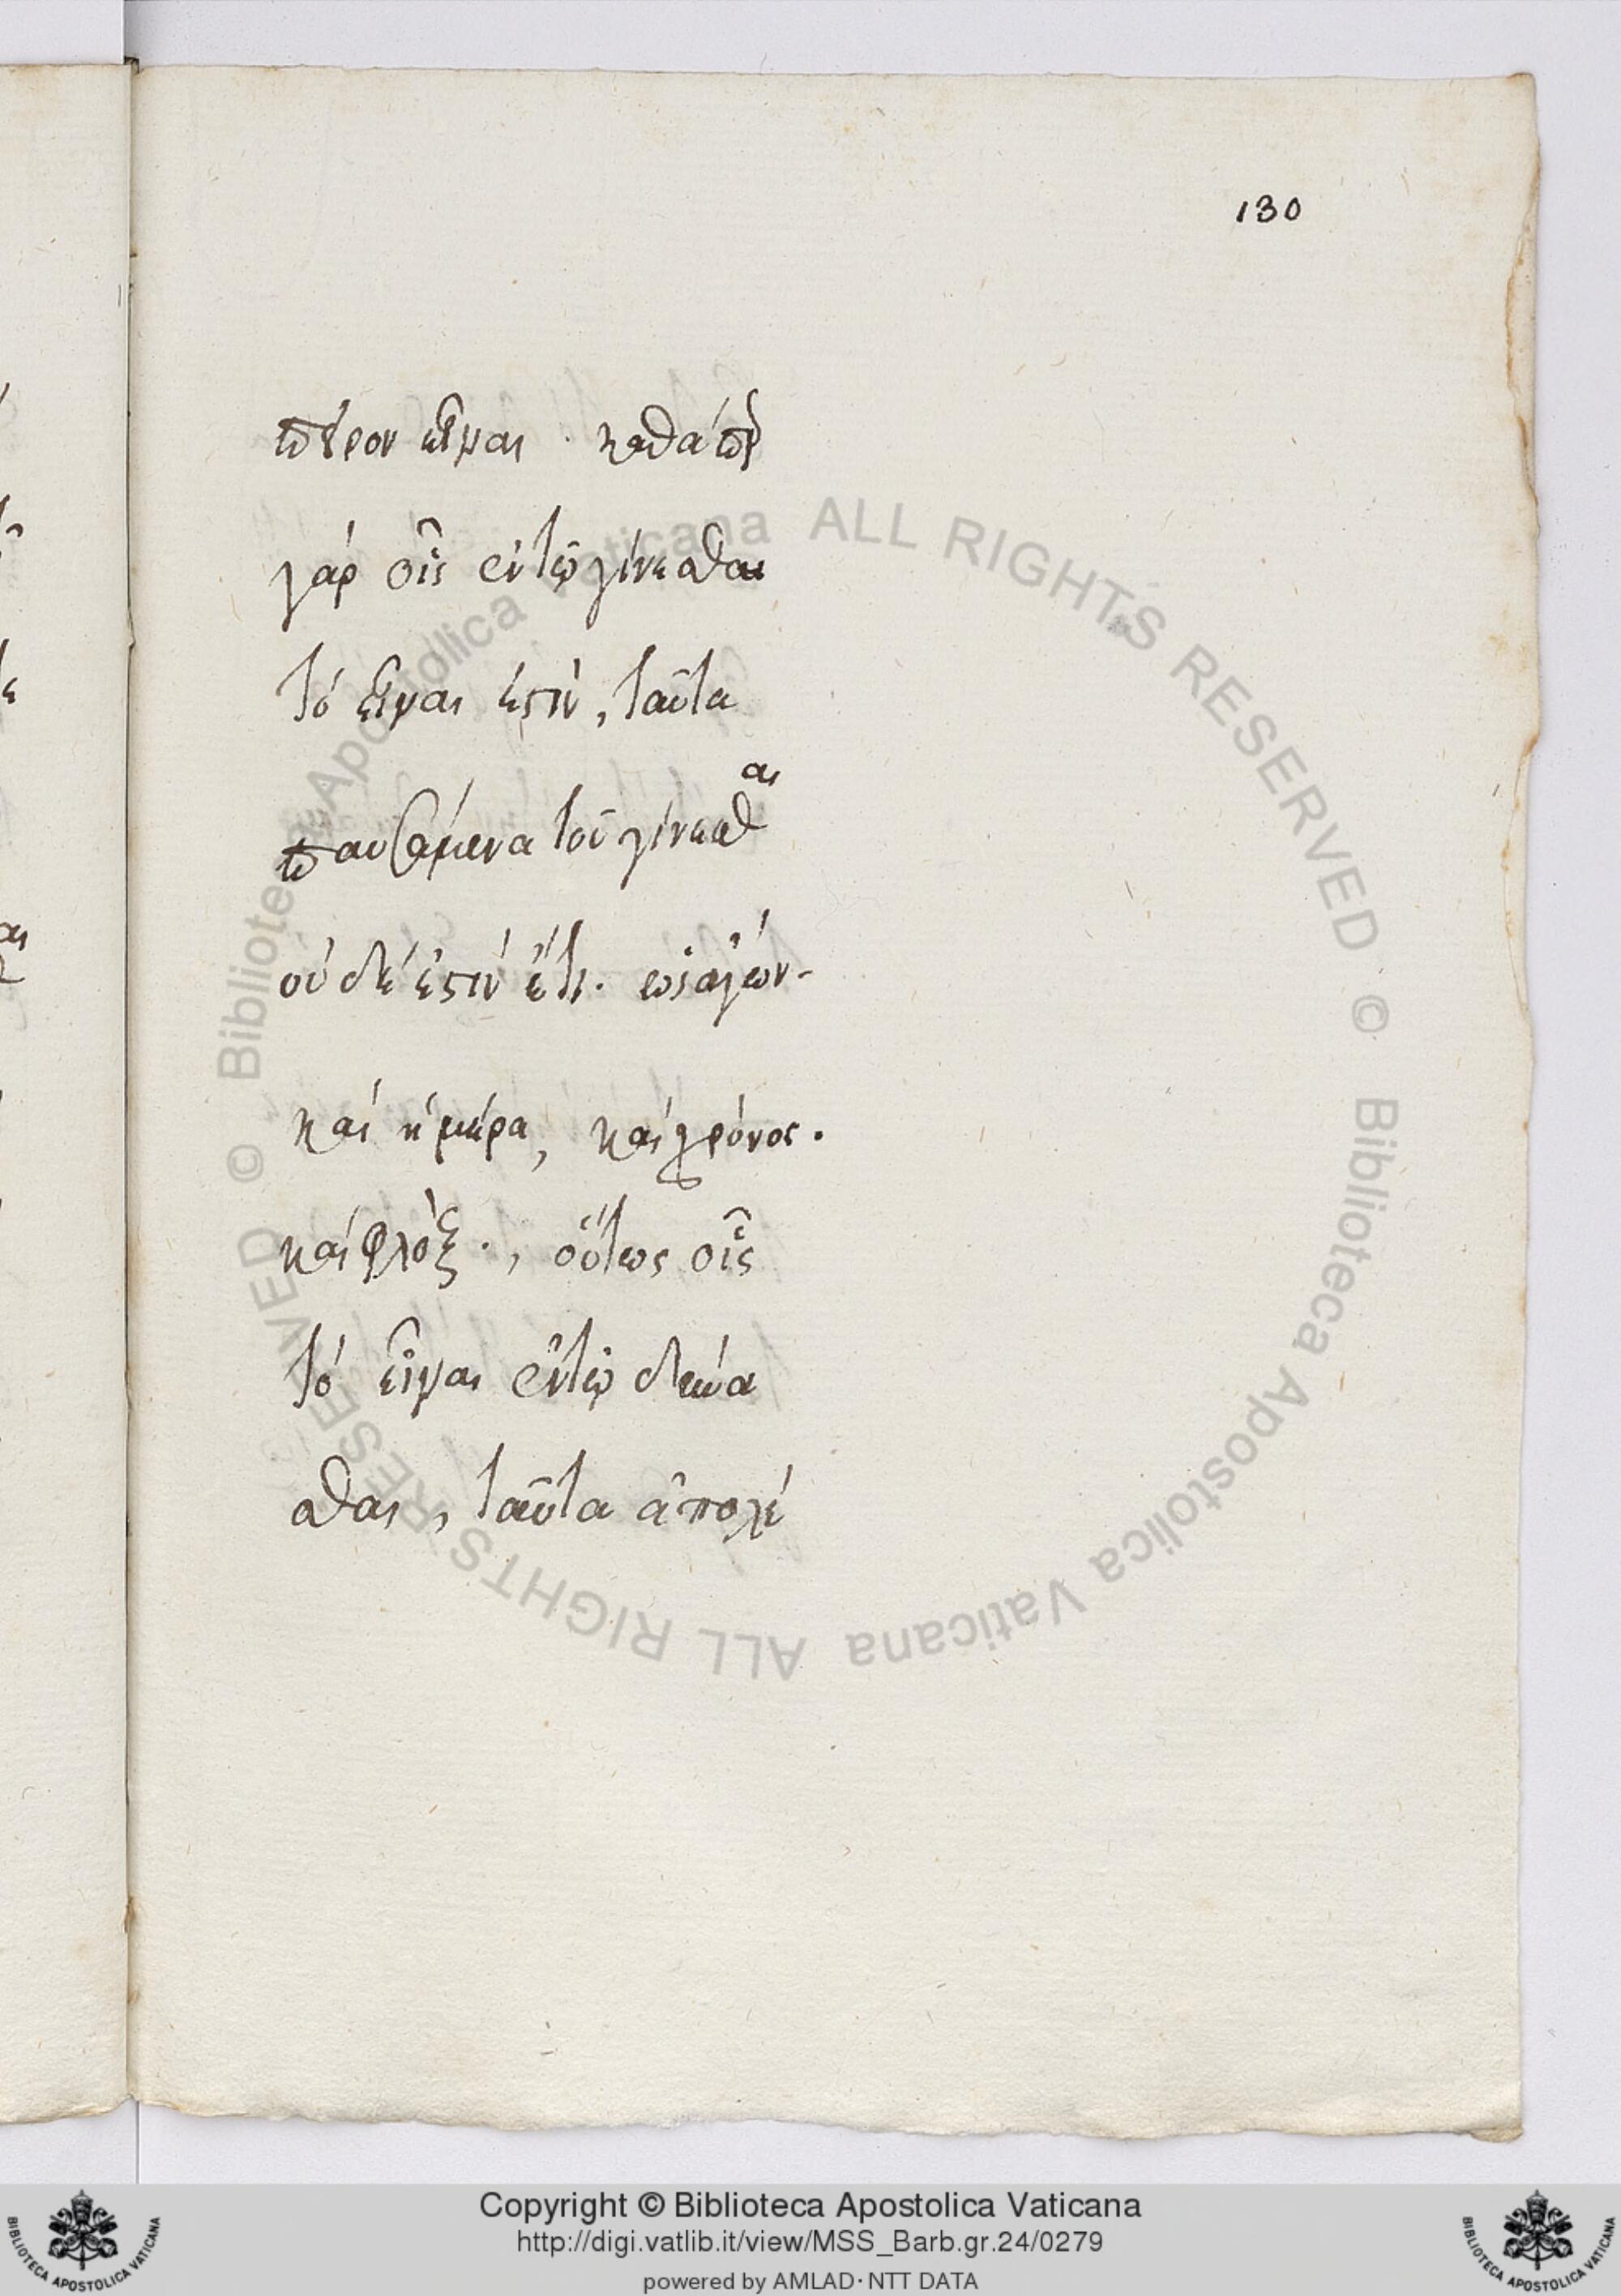 130
πύρον εἶναι · καθάπερ
γάρ οἷς ἐν τῷ γίνεσθαι
τό εἶναι ἐστιν, ταῦτα
παυσάμενα τοῦ γίνεσθαι
οὐδέ ἐστιν ἔτι · ὡς ἀγών
καί ἡμέρα, καί χρόνος ·
καί φλόξ ·, οὕτως οἷς
τό εἶναι ἐν τῷ
σθαι, ταῦτα ἀπολέ
Copyright © Biblioteca Apostolica Vaticana
http://digi.vatlib.it/view/MSS_Barb.gr.24/0279
powered by AMLAD·NTT DATA
© Biblioteca Apostolica Vaticana ALL RIGHTS RESERVED © Biblioteca Apostolica Vaticana ALL RIGHTS RESERVED
BIBLIOTECA APOSTOLICA VATICANA
BIBLIOTECA APOSTOLICA VATICANA